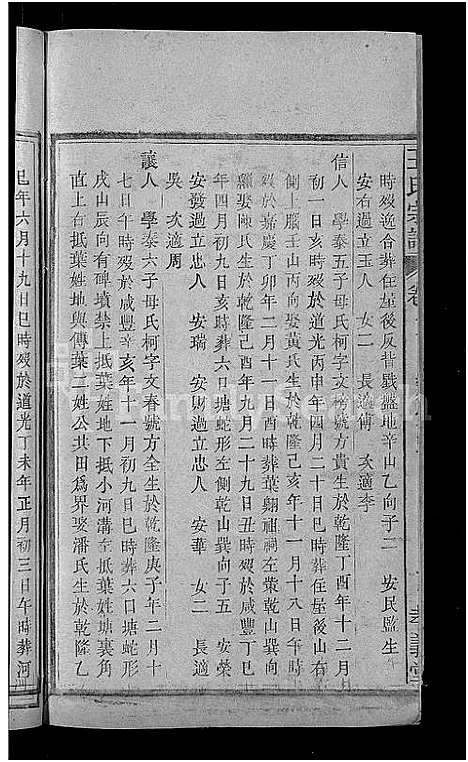 王氏宗譜
時歿逸合葬住屋後反背戰盤地辛山乙向子二 安民監生
安右過立玉人 女二 長適傅 次適李
信人 學泰五子母氏柯字文榜號方貴生於乾隆丁酉年十二月
初一日亥時歿於道光丙申年四月二十日巳時葬住屋後山右
側上腦壬山丙向娶黃氏生於乾隆己亥年十一月十八日午時
歿於嘉慶丁卯年二月十一日酉時葬葉翱祖祠左棠乾山巽向
繼娶陳氏生於乾隆己酉年九月二十九日丑時歿於咸豐丁巳
年四月初九日亥時葬六日塘蛇形左側乾山巽向子五 安榮
安發過立忠人 安瑞 安財過立忠人 安華 女二 長適
吳 次適周
讓人 學泰六子母氏柯字文春號方全生於乾隆庚子年二月十
七日午時歿於咸豐辛亥年十一月初九日巳時葬六口塘蛇形
戌山辰向有碑墳禁上抵葉姓地下抵小河溝左抵葉姓塘裏角
直上右抵葉姓地與傅葉二姓公共田為界娶潘氏生於乾隆乙
巳年六月十九日巳時歿於道光丁未年正月初三日午時葬河